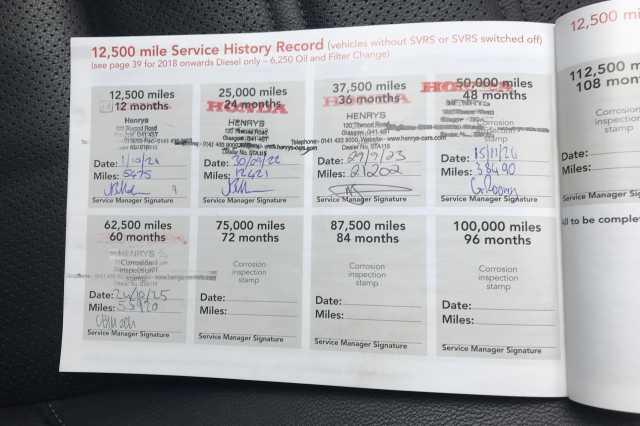 12,500 mile Service History Record (vehicles without SVRS or SVRS switched off)
(see page 39 for 2018 onwards Diesel only – 6,250 Oil and Filter Change)
12,500 miles
12 months
Henrys
Date:
Miles: 5475
Service Manager Signature
25,000 miles
24 months
HONDA
HENRYS
Date: 30/09/22
Miles: 12421
Service Manager Signature
37,500 miles
36 months
HENRYS
Date: 27/7/23
Miles: 21202
Service Manager Signature
50,000 miles
48 months
Corrosion
inspection
stamp
Date: 15/11/24
Miles: 38490
Service Manager Signature
62,500 miles
60 months
HENRYS
Corrosion
inspection
stamp
Date:
Miles: 53920
Service Manager Signature
75,000 miles
72 months
Corrosion
inspection
stamp
Date:
Miles:
Service Manager Signature
87,500 miles
84 months
Corrosion
inspection
stamp
Date:
Miles:
Service Manager Signature
100,000 miles
96 months
Corrosion
inspection
stamp
Date:
Miles:
Service Manager Signature
12,500 mi
112,500 m
108 mont
Corrosion
inspection
stamp
Date:
Miles:
Service Manager Sig
All to be comple